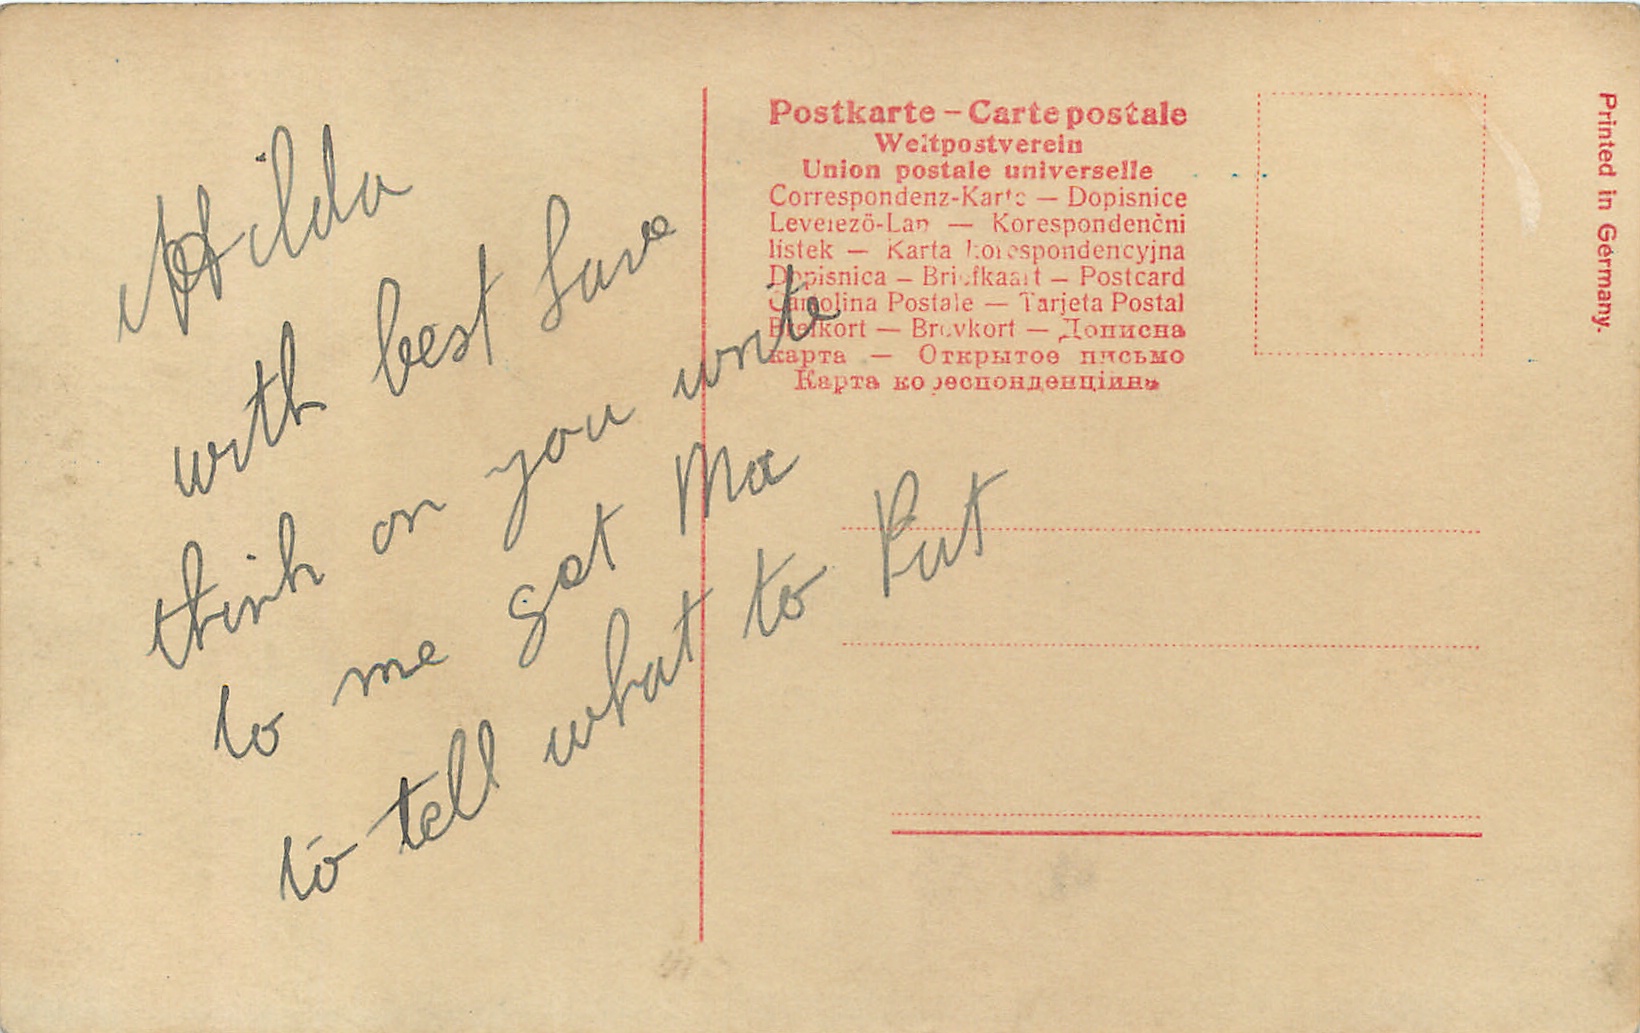 Hilda
with best Love
think on you write
to me get Ma
to tell what to Put
Postkarte – Carte postale
Weltpostverein
Union postale universelle
Correspondenz-Karte — Dopisnice
Levelező-Lap — Korespondenční
lístek — Karta korespondencyjna
Dopisnica – Briefkaart — Postcard
Cartolina Postale — Tarjeta Postal
Brefkort — Brevkort — Дописна
карта — Открытое письмо
Карта кореспонденціина
Printed in Germany.